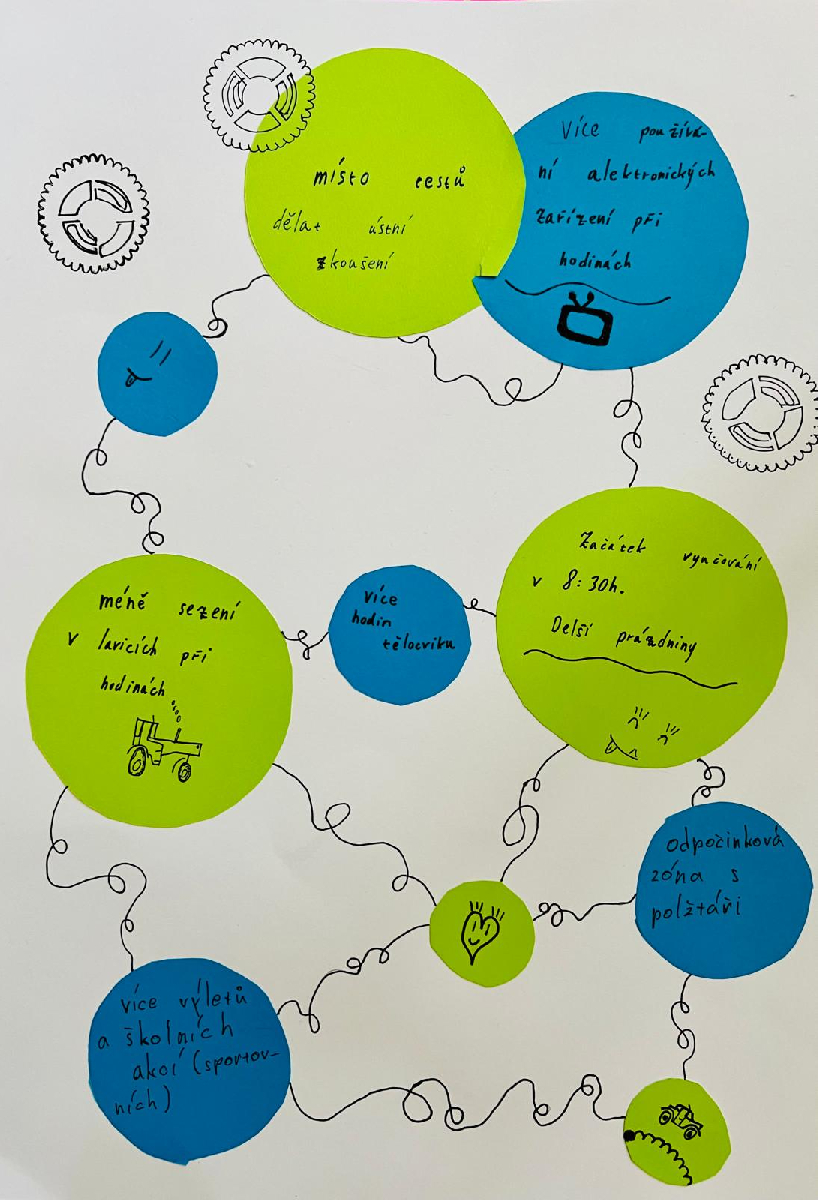 místo testů
dělat ústní
zkoušení
Více používá-
ní elektronických
zařízení při
hodinách
Začátek vyučování
v 8:30h.
Delší prázdniny
méně sezení
v lavicích při
hodinách
více
hodin
tělocviku
odpočinková
zóna s
polžtáři
více výletů
a školních
akcí (sportov-
ních)